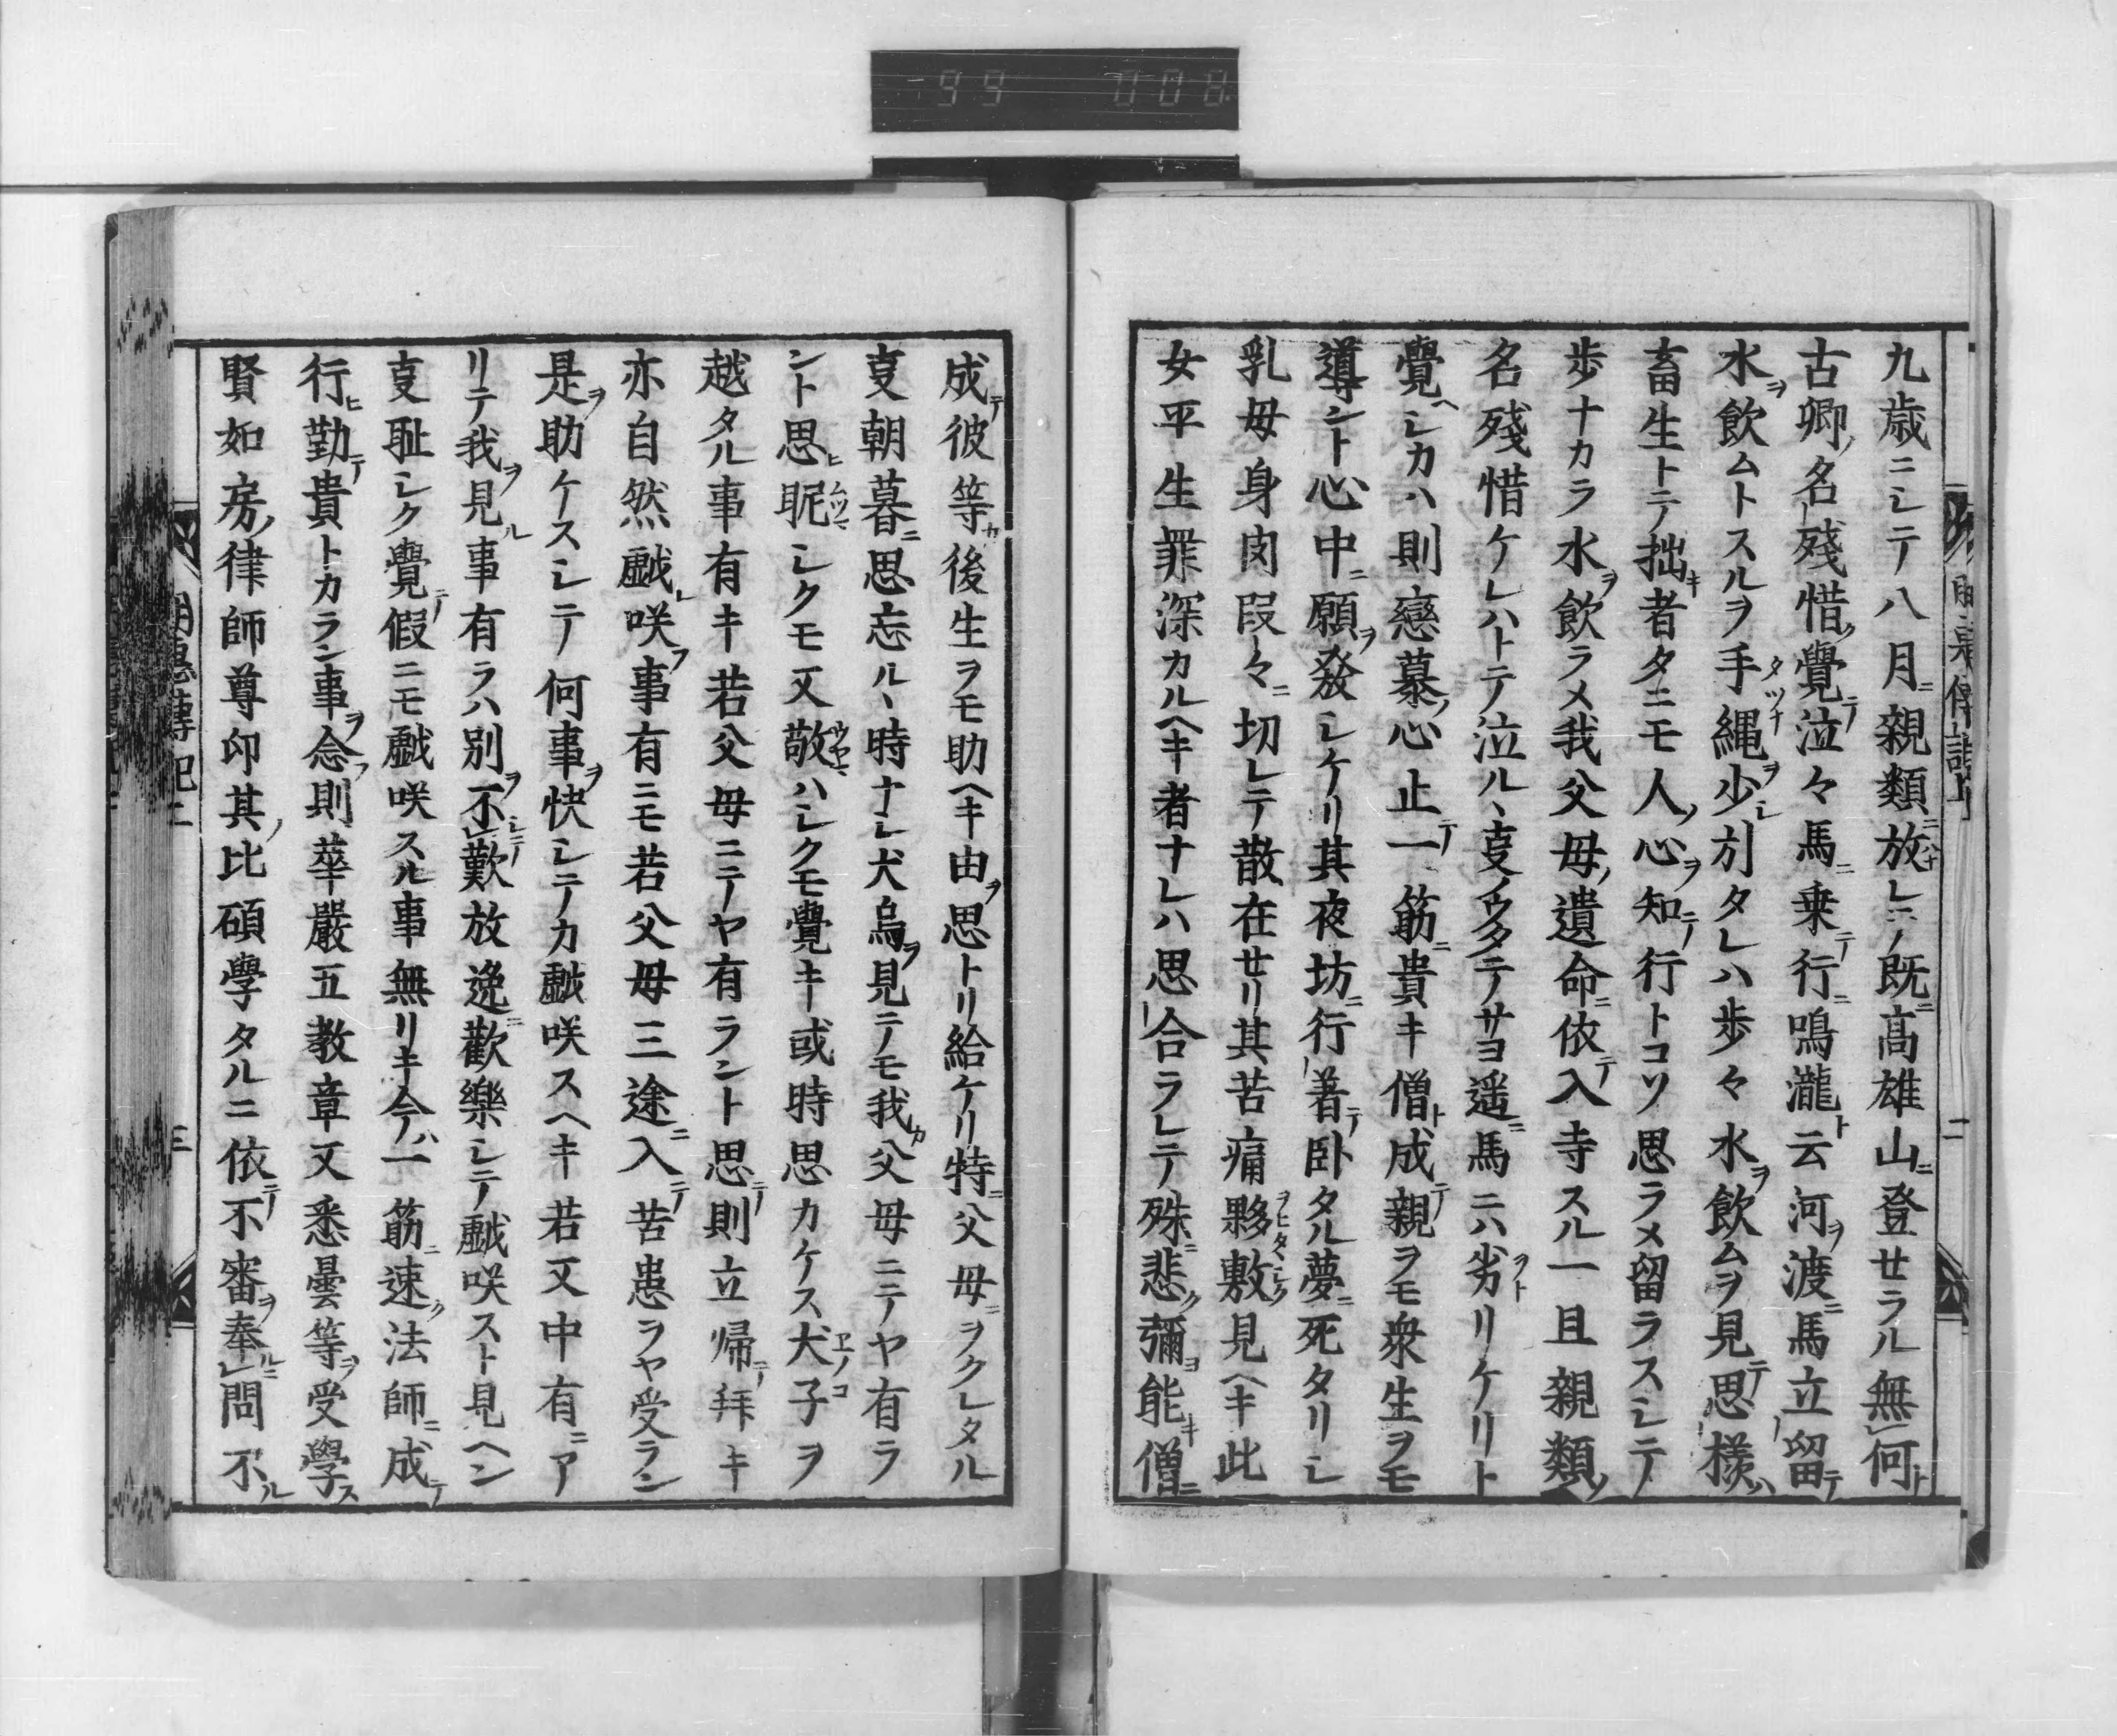 99 008
九歳ニシテ八月ニ親類ニハナ放レテ既ニ高雄山ニ登セラル無何ト
古郷ノ名残惜ク覺テ泣々馬ニ乗テ行ニ鳴瀧ト云河ヲ渡ニ馬立留テ
水ヲ飲ムトスルヲ手縄ヲ少シ引タレハ歩々水ヲ飲ムヲ見テ思様ハ
畜生トテ拙キ者タニモ人ノ心ヲ知テ行トコソ思ラメ留ラスシテ
歩ナカラ水ヲ飲ラメ我父母ノ遺命ニ依テ入寺スル一旦親類ノ
名残惜ケレハトテ泣ルヽ事ノウタテサヨ遥ニ馬ニハ劣リケリト
覺ヘシカハ則戀慕ノ心止テ一筋ニ貴キ僧ト成テ親ヲモ衆生ヲモ
導ント心中ニ願ヲ發シケリ其夜坊ニ行著テ卧タル夢ニ死タリシ
乳母身肉叚々ニ切レテ散在セリ其苦痛夥敷見ヘキ此
女平生罪深カルヘキ者ナレハ思合ラレテ殊ニ悲ク彌ヨ能キ僧ニ
成テ彼等カ後生ヲモ助ヘキ由ヲ思トリ給ケリ特ニ父母ニヲクレタル
事朝暮ニ思忘ルヽ時ナレ犬烏ヲ見テモ我カ父母ニテヤ有ラ
ント思ヒ昵シクモ又敬ハシクモ覺キ或時思カケス犬子ヲ
越タル事有キ若父母ニテヤ有ラント思テ則立帰テ拜キ
亦自然戯レ咲フ事有ニモ若父母三途ニ入テ苦患ラヤ受ラン
是ヲ助ケスシテ何事ヲ快シテカ戯咲スヘキ若又中有ニア
リテ我ヲ見ル事有ラハ別ヲ不歎シテ放逸ニ歡樂シテ戯咲スト見ヘン
事耻シク覺テ假ニモ戯咲スル事無リキ今ハ一筋ニ速ク法師ニ成テ
行ヒ勤テ貴トカラン事ヲ念フ則華嚴五教章又悉曇等ヲ受學ス
賢如房ノ律師尊印其ノ比碩學タルニ依テ不審ヲ奉ルニ問不ル
明惠傳記 三